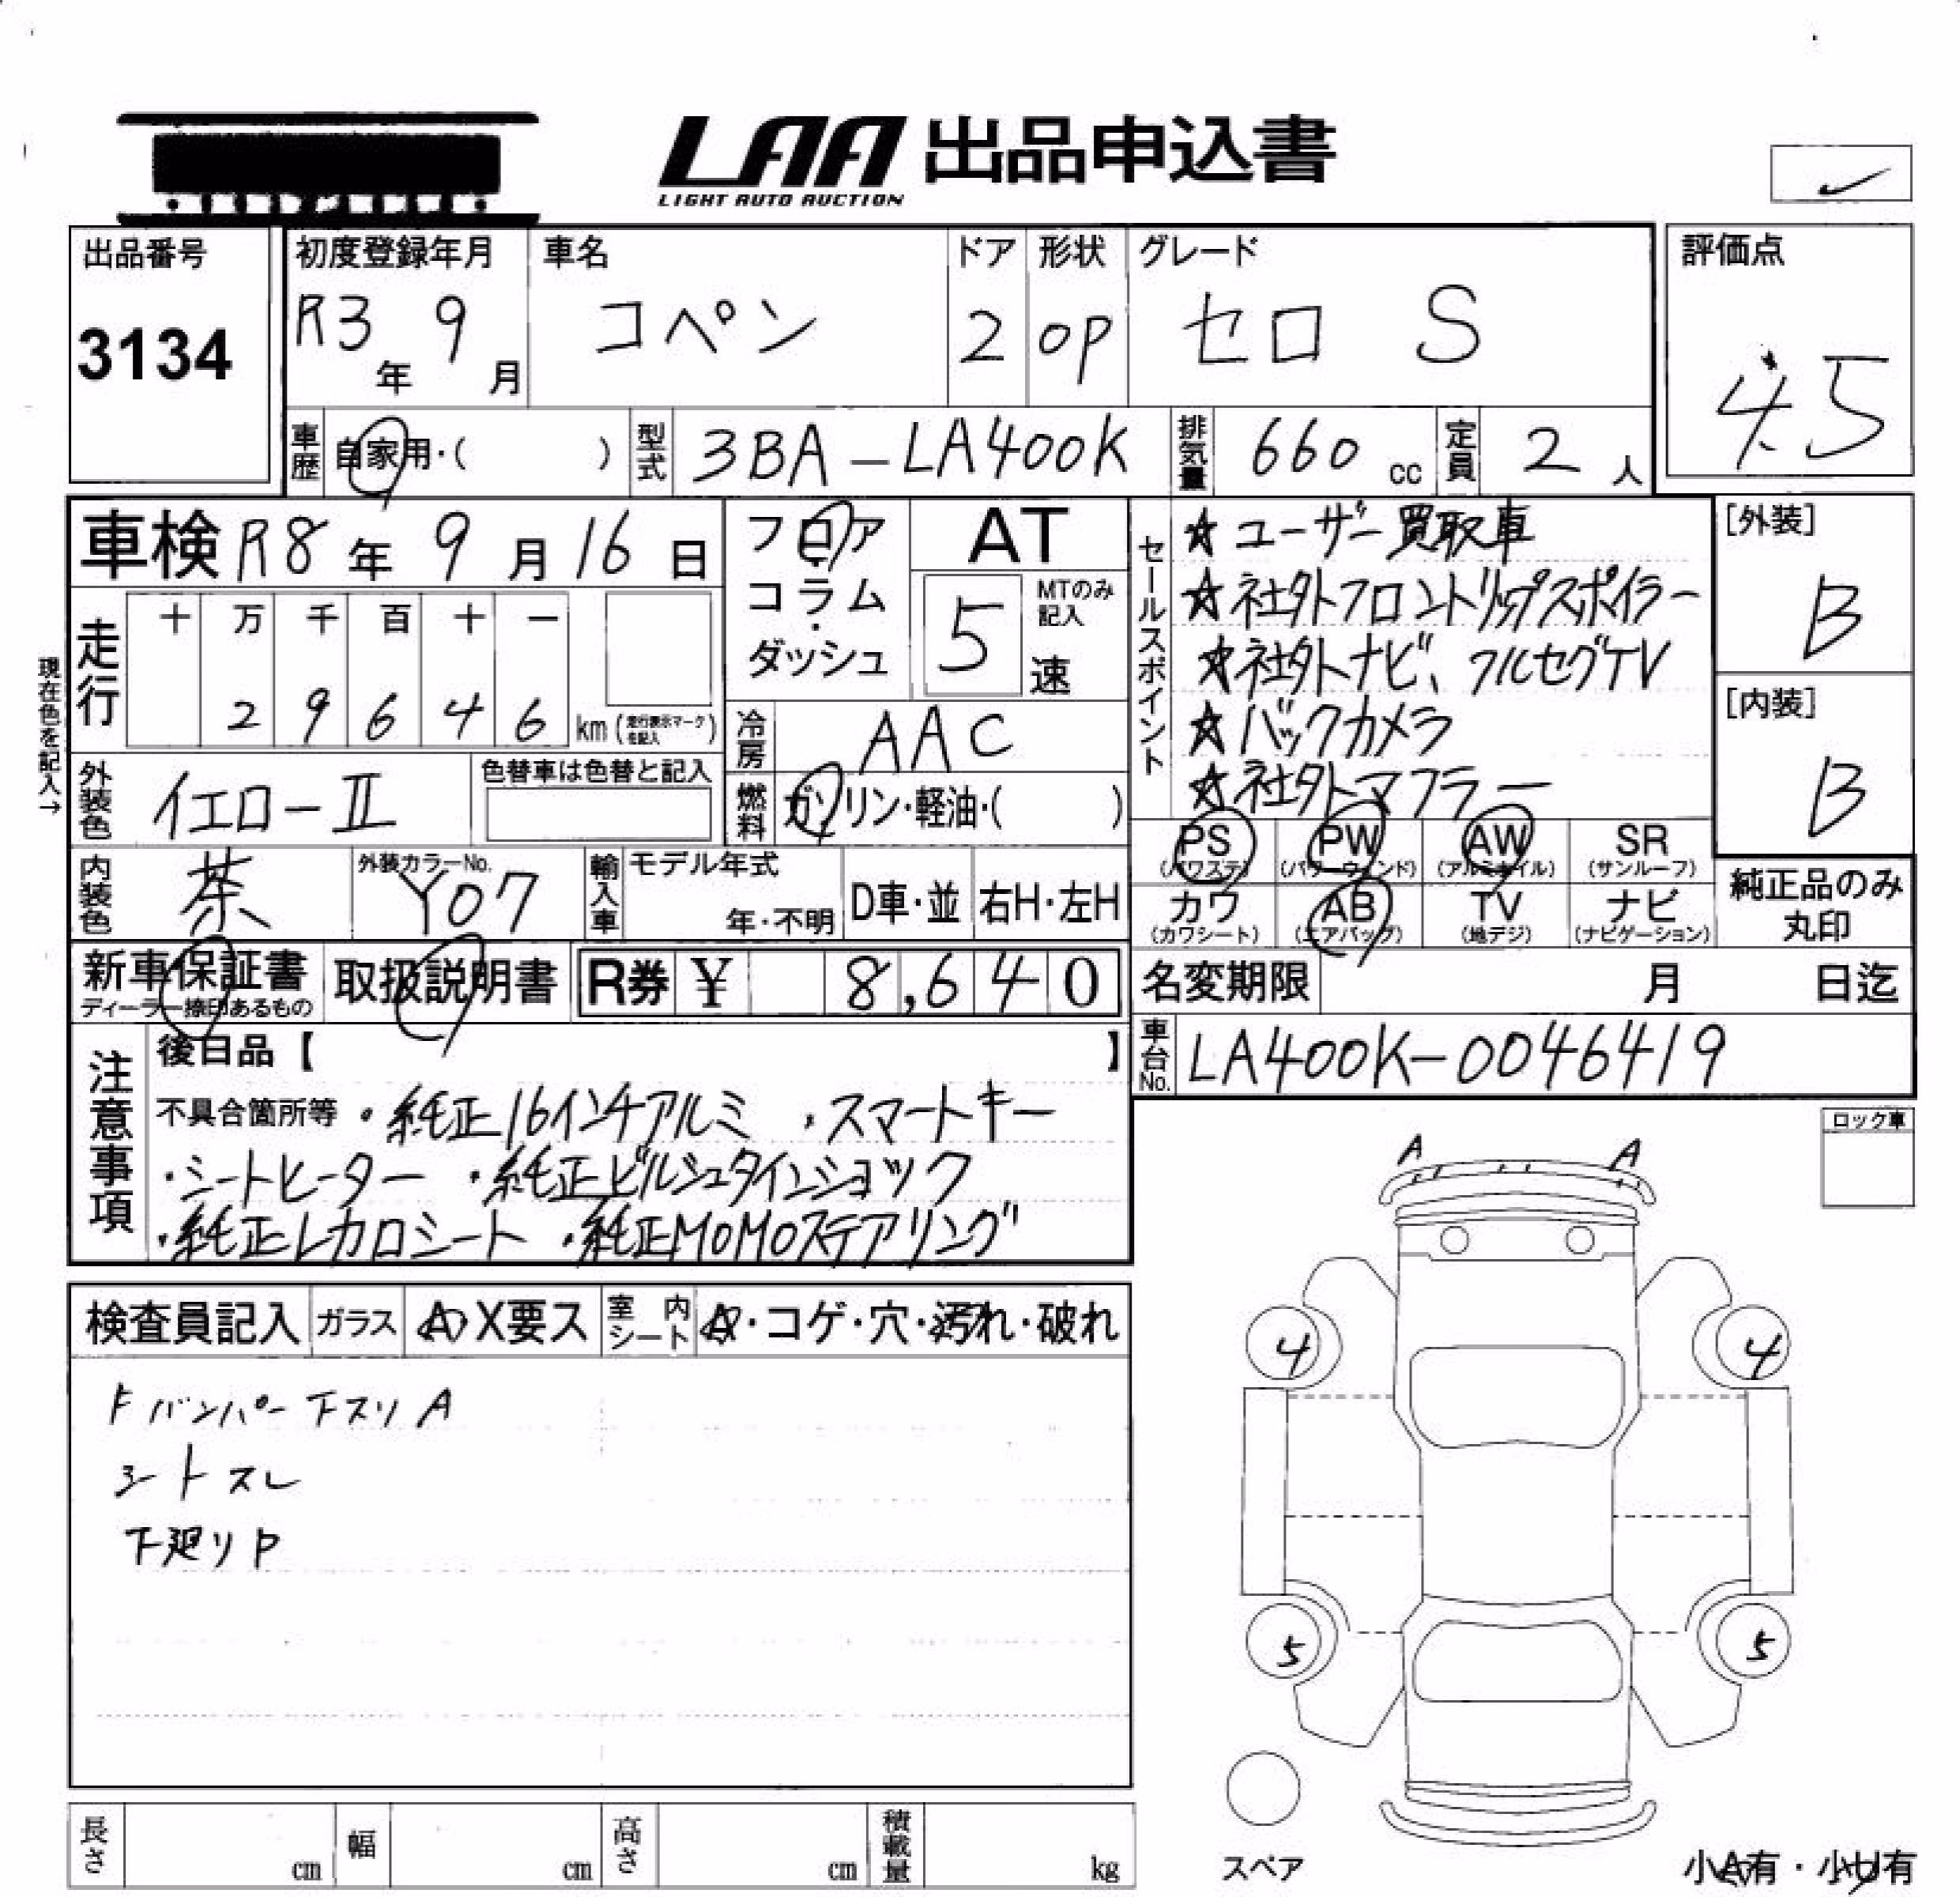 LAA 出品申込書
LIGHT AUTO AUCTION
出品番号 3134
初度登録年月 R3年 9月
車名 コペン
ドア 2
形状 OP
グレード セロ S
評価点 4.5
車歴 自家用・( )
型式 3BA-LA400K
排気量 660 cc
定員 2 人
車検 R8年 9月 16日
フロア・コラム・ダッシュ
AT
5 速
MTのみ記入
現在色を記入→
走行 十 万 千 百 十 一
2 9 6 4 6 km (走行表示マークを記入)
冷房 AAC
燃料 ガソリン・軽油・( )
セールスポイント
☆ユーザー買取車
☆社外フロントリップスポイラー
☆社外ナビ、フルセグTV
☆バックカメラ
☆社外マフラー
[外装] B
[内装] B
外装色 イエローⅡ
色替車は色替と記入
内装色 茶
外装カラーNo. Y07
輸入車 モデル年式 年・不明
D車・並
右H・左H
PS (パワステ)
PW (パワーウィンド)
AW (アルミホイル)
SR (サンルーフ)
カワ (カワシート)
AB (エアバッグ)
TV (地デジ)
ナビ (ナビゲーション)
純正品のみ丸印
新車保証書 ディーラー捺印あるもの
取扱説明書
R券 ¥ 8,640
名変期限 月 日迄
車台No. LA400K-0046419
注意事項
後日品【 】
不具合箇所等 ・純正16インチアルミ ・スマートキー
・シートヒーター ・純正ビルシュタインショック
・純正レカロシート ・純正MOMOステアリング
ロック車
A A
検査員記入
ガラス A X要ス
室内シート A・コゲ・穴・汚れ・破れ
Fバンパー下スリA
シートスレ
下廻りP
4 4
5 5
スペア
小A有・小U有
長さ cm
幅 cm
高さ cm
積載量 kg